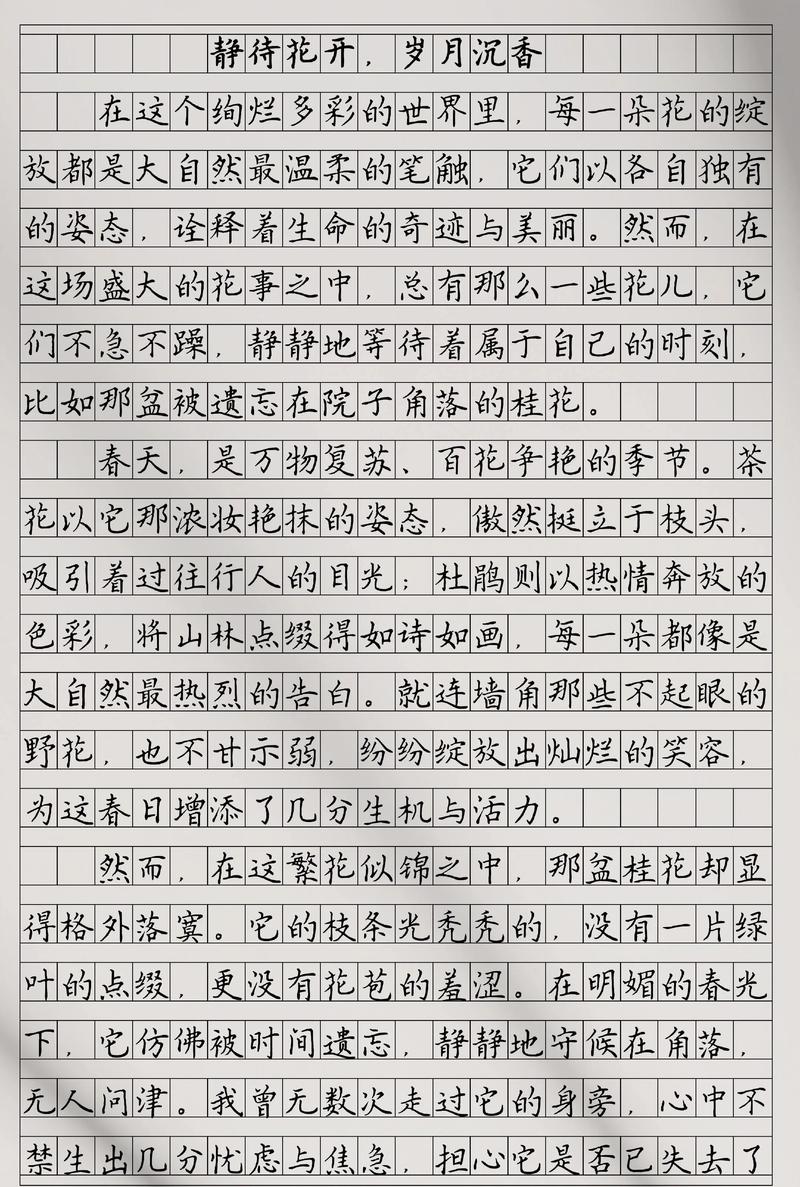 静待花开，岁月沉香
在这个绚烂多彩的世界里，每一朵花的绽
放都是大自然最温柔的笔触，它们以各自独有
的姿态，诠释着生命的奇迹与美丽。然而，在
这场盛大的花事之中，总有那么一些花儿，它
们不急不躁，静静地等待着属于自己的时刻，
比如那盆被遗忘在院子角落的桂花。
春天，是万物复苏、百花争艳的季节。茶
花以它那浓妆艳抹的姿态，傲然挺立于枝头，
吸引着过往行人的目光；杜鹃则以热情奔放的
色彩，将山林点缀得如诗如画，每一朵都像是
大自然最热烈的告白。就连墙角那些不起眼的
野花，也不甘示弱，纷纷绽放出灿烂的笑容，
为这春日增添了几分生机与活力。
然而，在这繁花似锦之中，那盆桂花却显
得格外落寞。它的枝条光秃秃的，没有一片绿
叶的点缀，更没有花苞的羞涩。在明媚的春光
下，它仿佛被时间遗忘，静静地守候在角落，
无人问津。我曾无数次走过它的身旁，心中不
禁生出几分忧虑与焦急，担心它是否已失去了